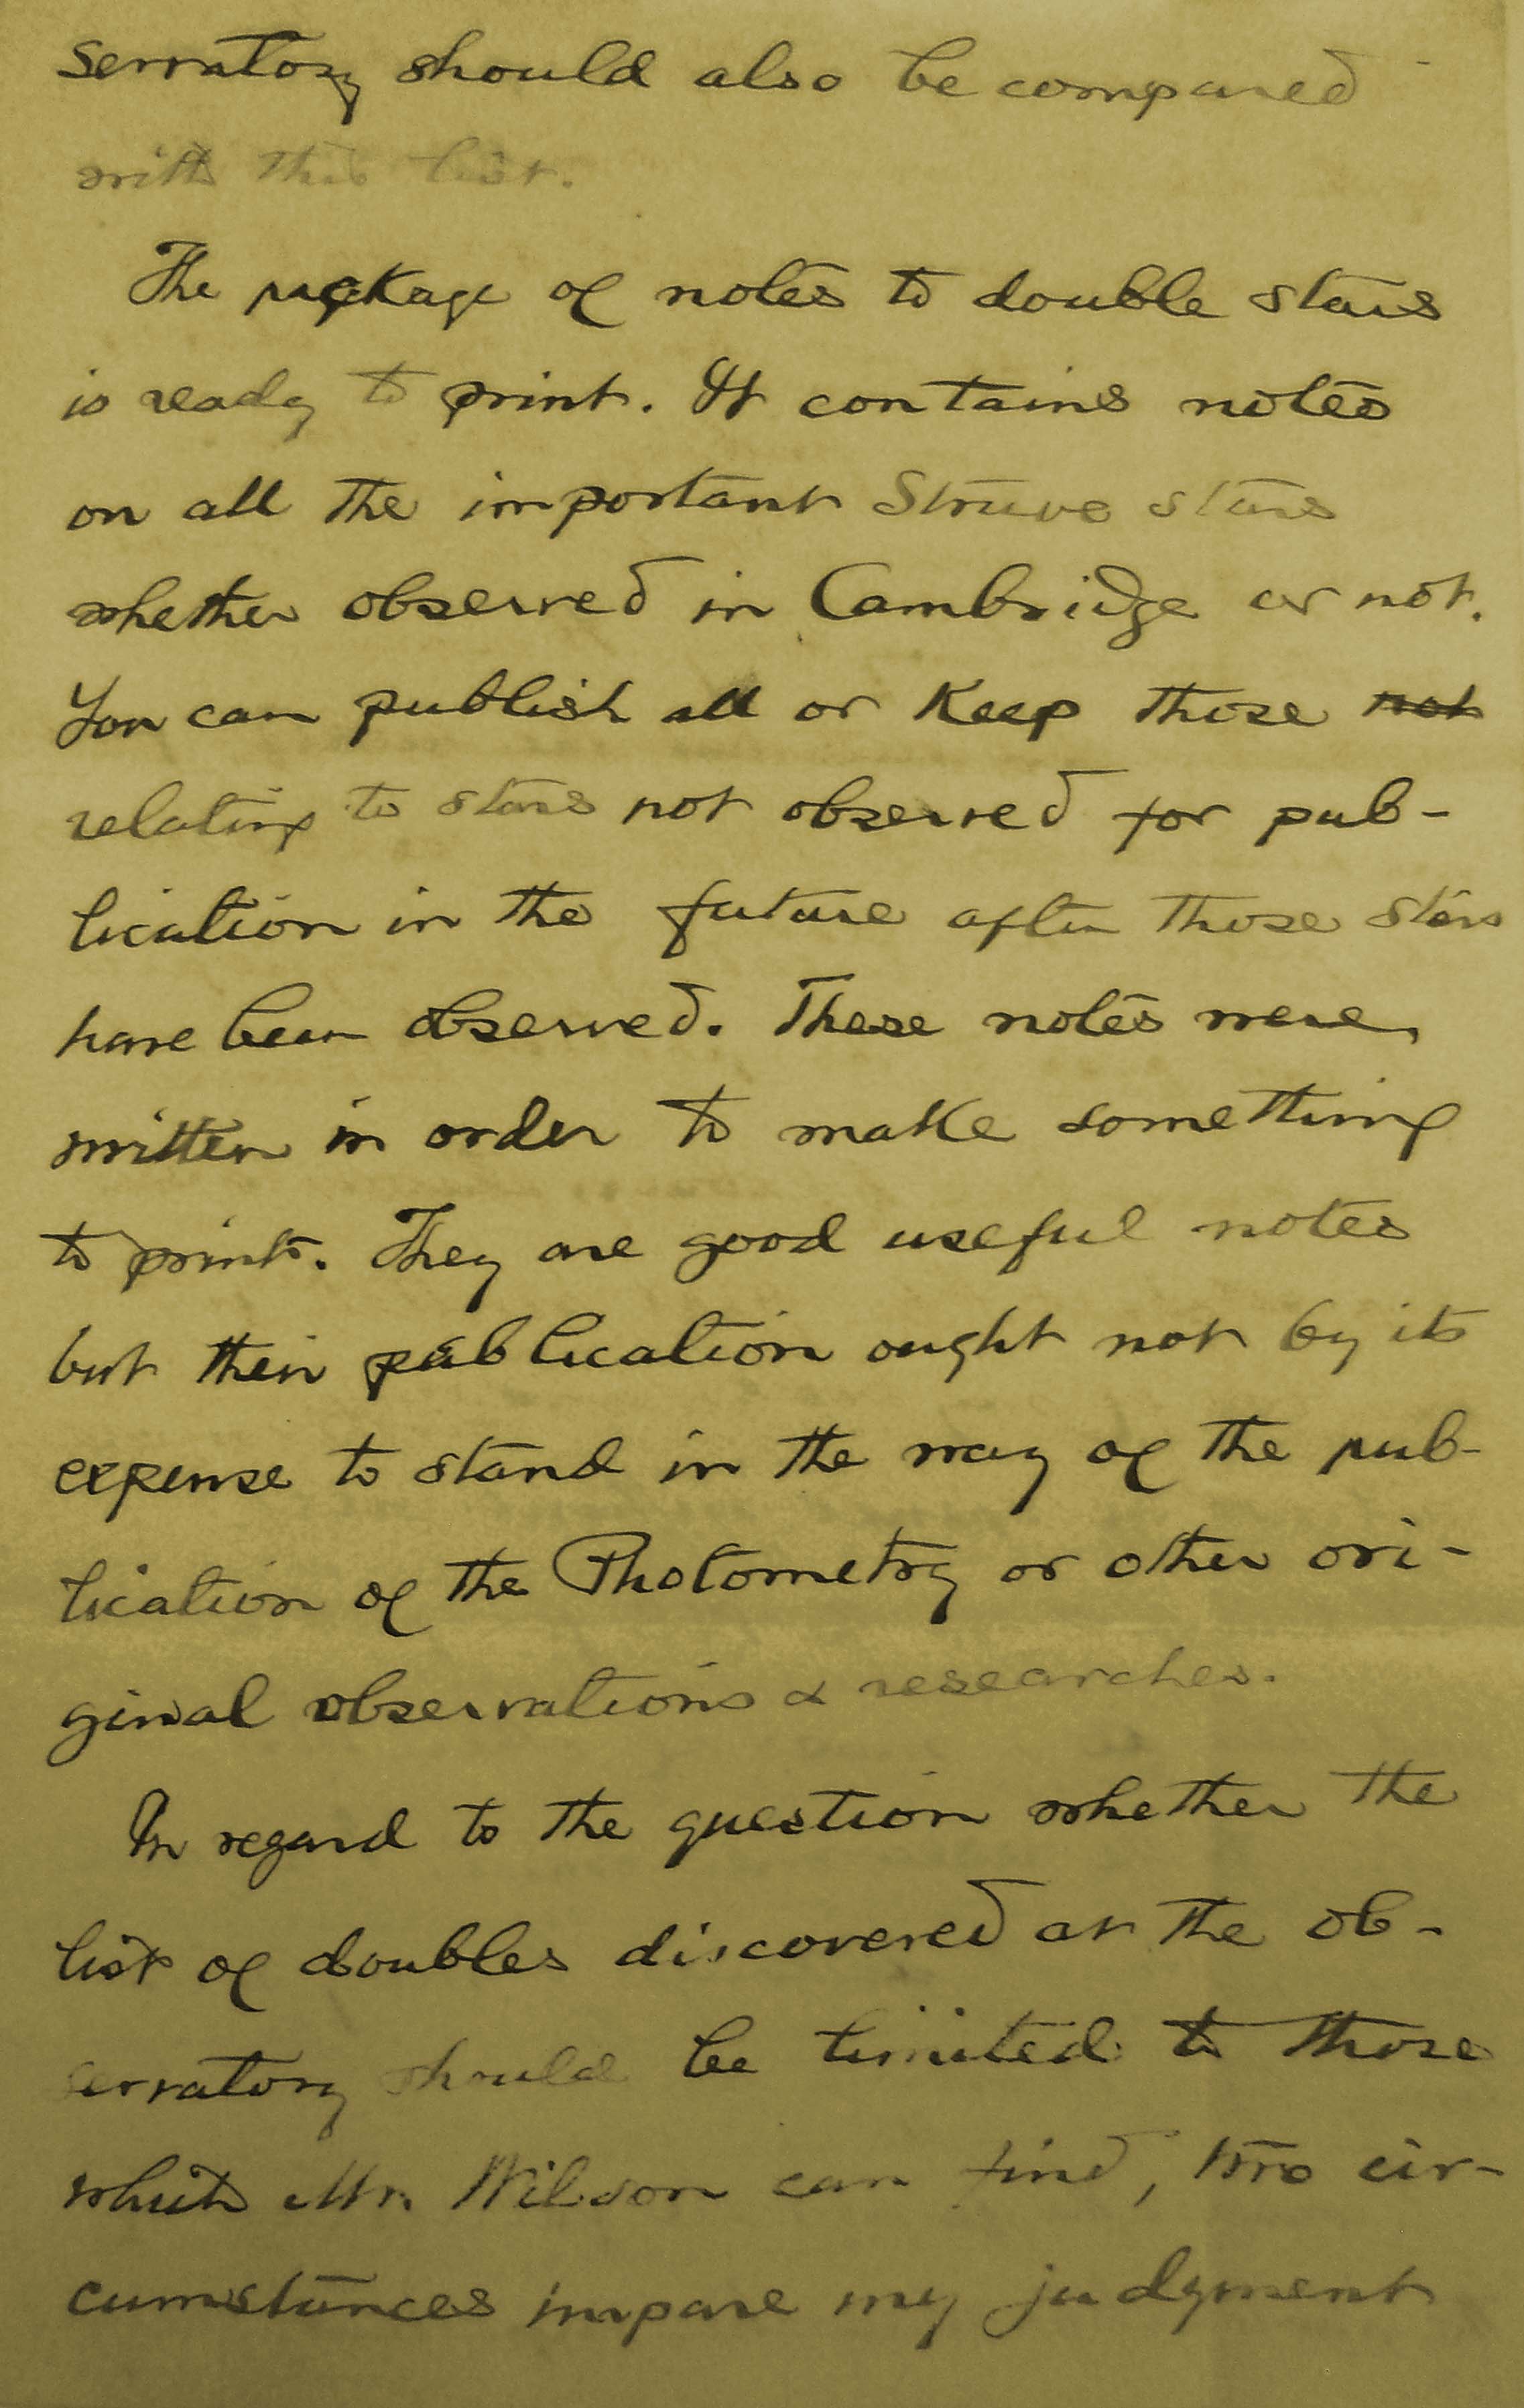 servatory should also be compared
with this list.
The package of notes to double stars
is ready to print. It contains notes
on all the important Struve stars
whether observed in Cambridge or not.
You can publish all or keep those not
relating to stars not observed for pub-
lication in the future after those stars
have been observed. These notes were
written in order to make something
to print. They are good useful notes
but their publication ought not by its
expense to stand in the way of the pub-
lication of the Photometry or other ori-
ginal observations & researches.
In regard to the question whether the
list of doubles discovered at the ob-
servatory should be limited to those
which Mr. Wilson can find, two cir-
cumstances impare my judgment